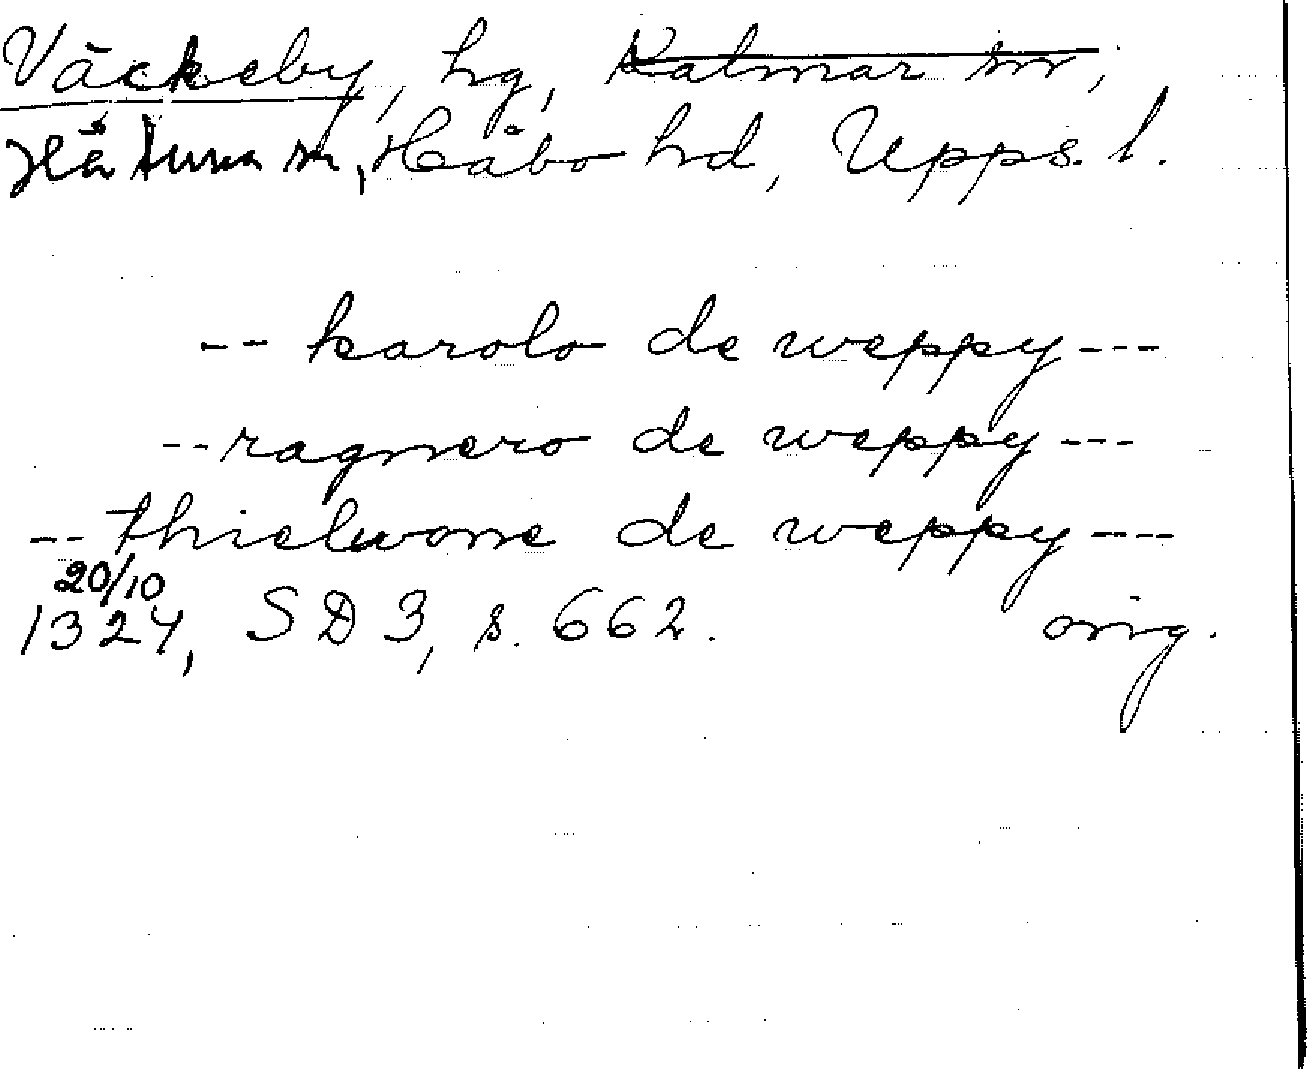 Väckeby, hg, Kalmar sn,
Håtuna sn, Håbo hd, Upps. l.
-- karolo de weppy ---
-- ragnero de weppy ---
-- thielwone de weppy ---
20/10
1324, SD 3, s. 662. orig.